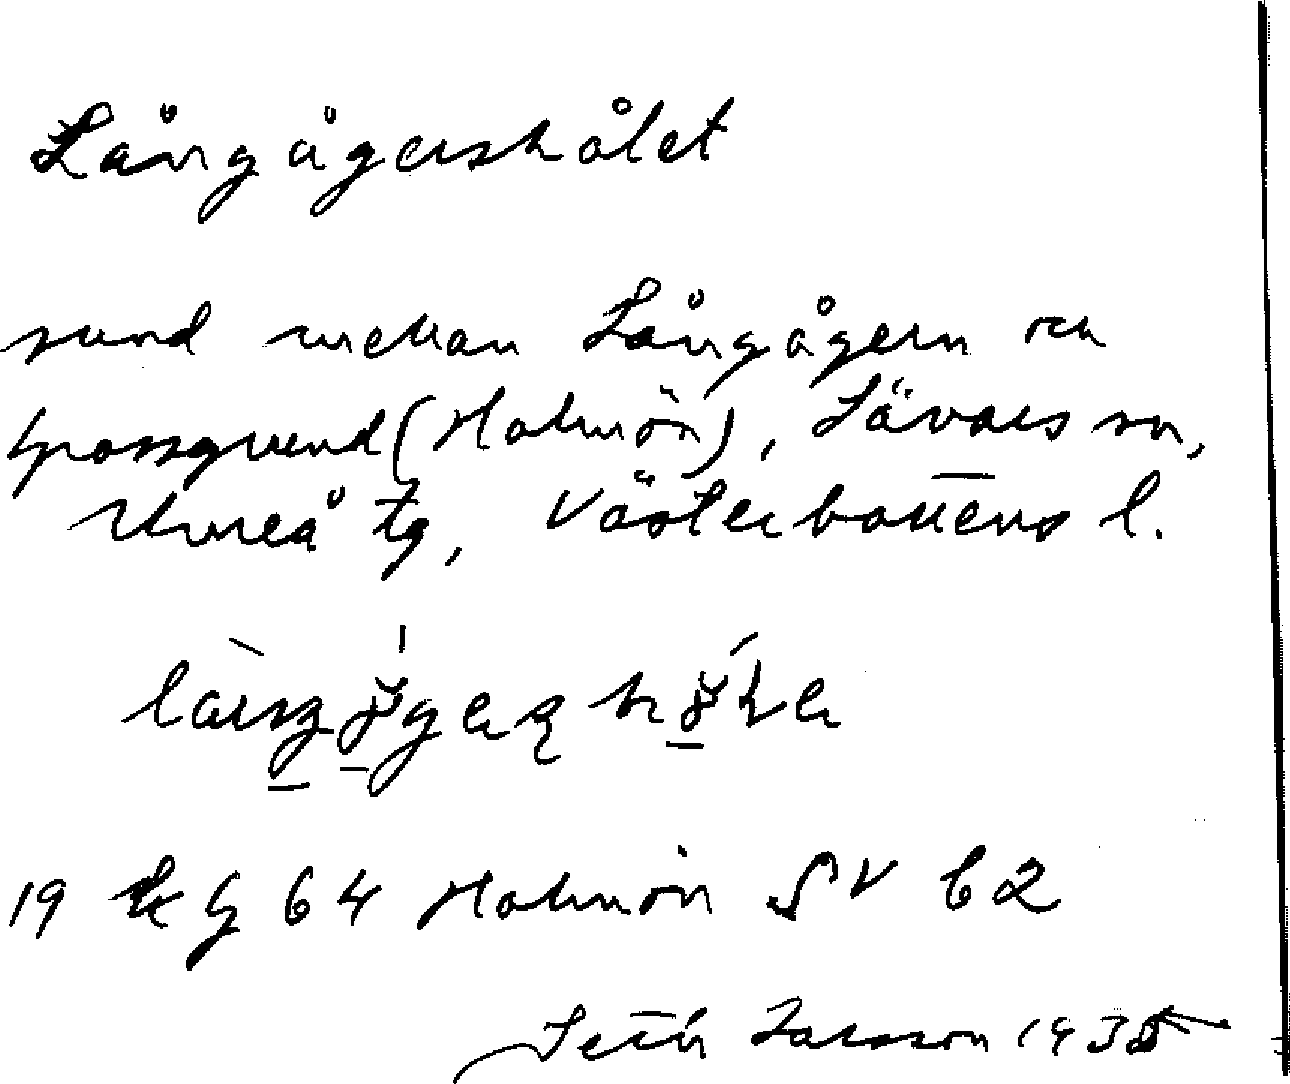 Långågershålet
sund mellan Långågern och
grossgrund (Holmön), Sävars sn,
Umeå tg, Västerbottens l.
19 k G 64 Holmön SV b2
Setth Larsson 1935